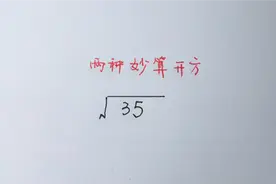 两种妙算开方
√35